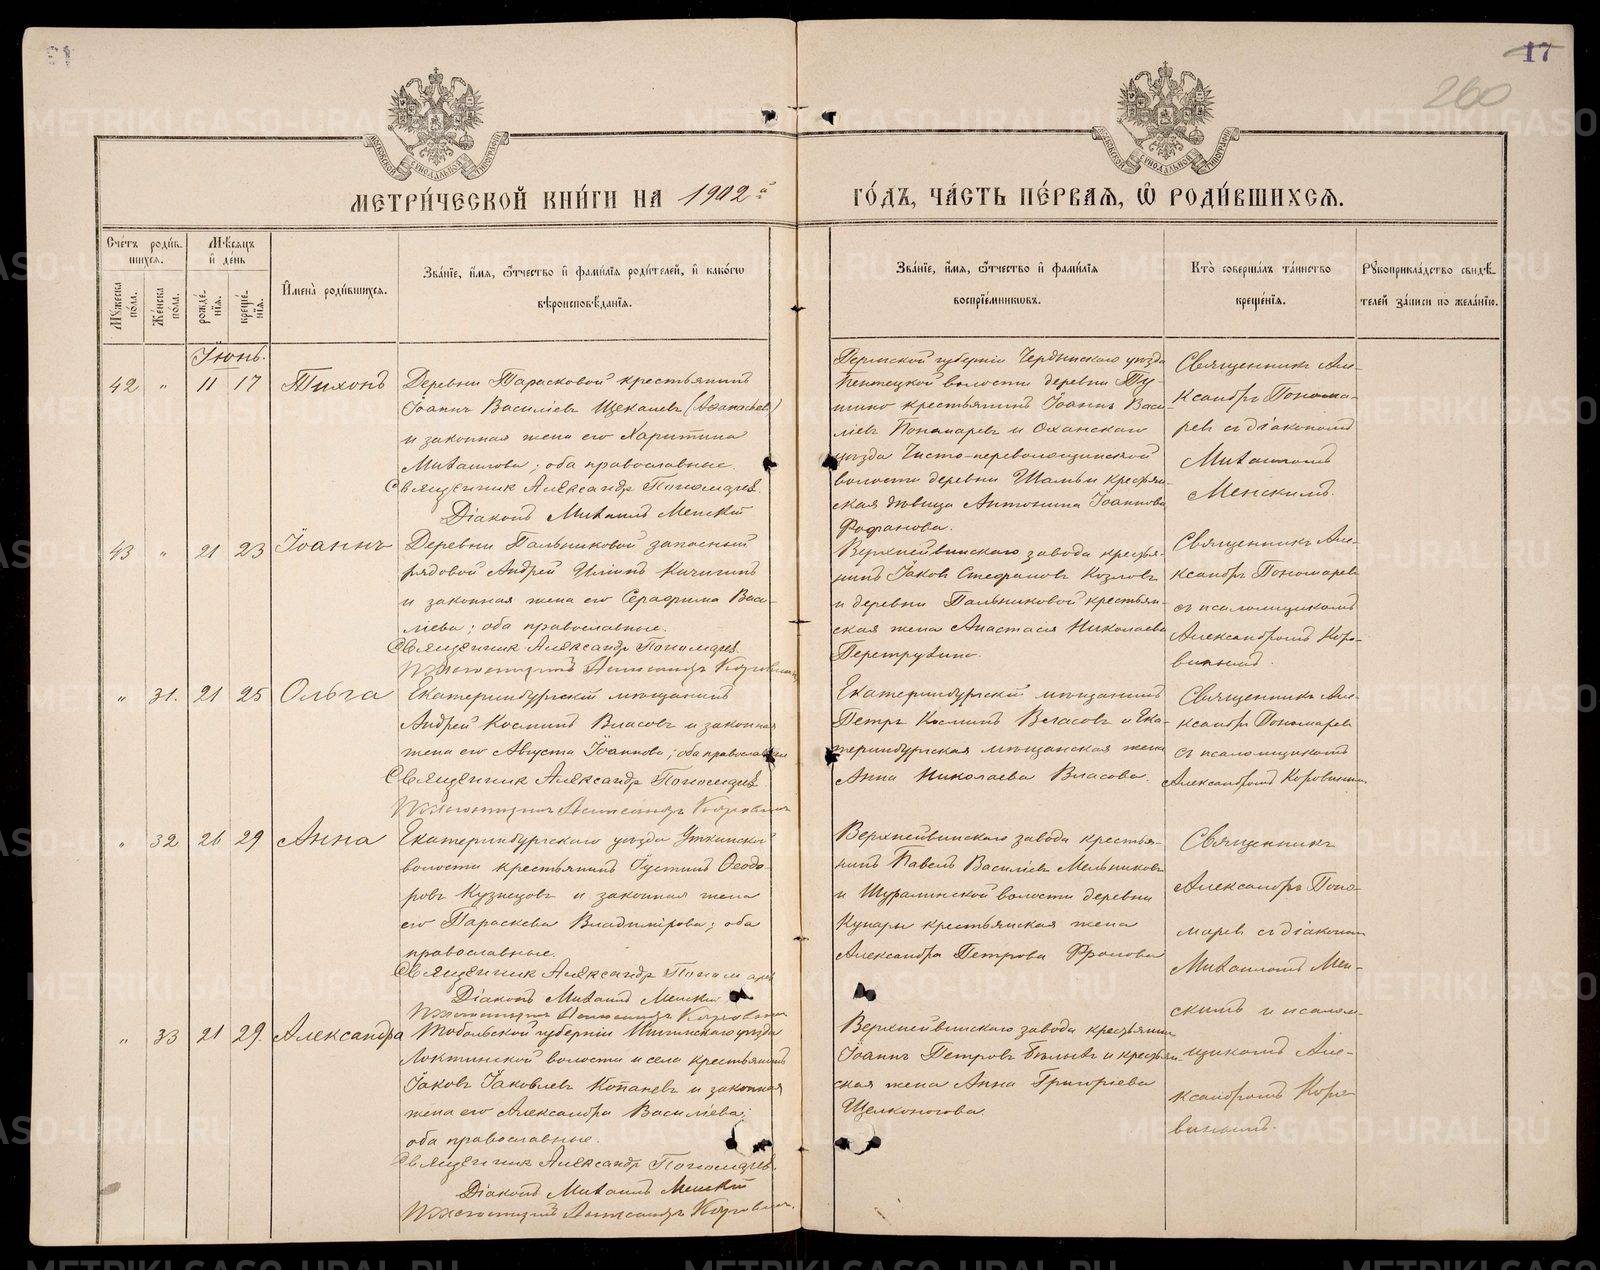 17
260
МОСКОВСКОЙ СѴНОДАЛЬНОЙ ТИПОГРАФІИ
МОСКОВСКОЙ СѴНОДАЛЬНОЙ ТИПОГРАФІИ
МЕТРИ́ЧЕСКОЙ КНИ́ГИ НА 1902й
ГО́ДЪ, ЧА́СТЬ ПЕ́РВАѦ, Ѡ҆ РОДИ́ВШИХСѦ.
Сче́тъ роди́в-
шихся.
Мѣ́сяцъ
и҆ де́нь
Му́жеска по́ла.
Же́нска по́ла.
рожде́нїя.
креще́нїя.
И҆мена̀ роди́вшихся.
Зва́нїе, и҆́мя, ѻ҆́тчество и҆ фами́лїя роди́телей, и҆ како́гѡ
вѣроисповѣ́данїя.
Зва́нїе, и҆́мя, ѻ҆́тчество и҆ фами́лїя
воспрїе́мниковъ.
Кто̀ соверша́лъ та́инство
креще́нїя.
Рꙋкоприкла́дство свидѣ́-
телей за́писи по жела́нїю.
Іюнь.
42 " 11 17 Тихонъ
Деревни Тарасковой крестьянинъ
Іоаннъ Василіевъ Щекалевъ (Аѳанасьев)
и законная жена его Харитина
Михаилова; оба православные.
Священник Александр Пономарев.
Діаконъ Михаилъ Менскій
Пермской губерніи Чердынскаго уезда
волости деревни Ту-
крестьянинъ Іоаннъ Васи-
ліевъ Пономаревъ и Оханскаго
уезда Чисто-переволочинской
волости деревни Шальи крестьян-
ская дѣвица Антонина Іоаннова
Фофанова.
Священникъ Але-
ксандръ Понома-
ревъ съ діакономъ
Михаиломъ
Менскимъ.
43 " 21 23 Іоаннъ
Деревни Пальниковой запасный
рядовой Андрей Кичигинъ
и законная жена его Серафима Васи-
ліева; оба православные.
Священник Александр Пономарев.
Псаломщикъ Александръ Коровинъ
Верхнейвинскаго завода крестья-
нинъ Іаковъ Стефановъ Козловъ
и деревни Пальниковой крестьян-
ская жена Анастасія Николаева
Перетрухина.
Священникъ Але-
ксандръ Пономаревъ
съ псаломщикомъ
Александромъ Коро-
винымъ.
" 31. 21 25 Ольга
Екатеринбургскій мѣщанинъ
Андрей Косминъ Власовъ и законная
жена его Августа Іоаннова; оба православные
Священник Александр Пономарев
Псаломщикъ Александръ Коровинъ
Екатеринбургскій мѣщанинъ
Петръ Косминъ Власовъ и Ека-
теринбургская мѣщанская жена
Анна Николаева Власова.
Священникъ Але-
ксандръ Пономаревъ
съ псаломщикомъ
Александромъ Коровинымъ
" 32 26 29 Анна
Екатеринбургскаго уезда Уткинской
волости крестьянинъ Іустинъ Ѳеодо-
ровъ Кузнецовъ и законная жена
его Параскева Владимірова; оба
православные.
Священник Александр Пономарев
Діаконъ Михаилъ Менскій
Псаломщикъ Александръ Коровинъ
Верхнейвинскаго завода крестья-
нинъ Павелъ Василіевъ Мельниковъ
и Шуралинской волости деревни
Кунары крестьянская жена
Александра Петрова Фролова
Священникъ
Александръ Поно-
маревъ съ діакономъ
Михаиломъ Мен-
скимъ и псалом-
щикомъ Але-
ксандромъ Коро-
винымъ.
" 33 21 29. Александра
Тобольской губерніи Ишимскаго уезда
Локтинской волости и села крестьянинъ
Іаковъ Іаковлевъ Копаневъ и законная
жена его Александра Василіева;
оба православные.
Священник Александр Пономарев.
Діаконъ Михаилъ Менскій
Псаломщикъ Александръ Коровинъ.
Верхнейвинскаго завода крестьянинъ
Іоаннъ Петровъ Бѣлыхъ и крестьян-
ская жена Анна Григоріева
Щелконогова.
METRIKI.GASO-URAL.RU